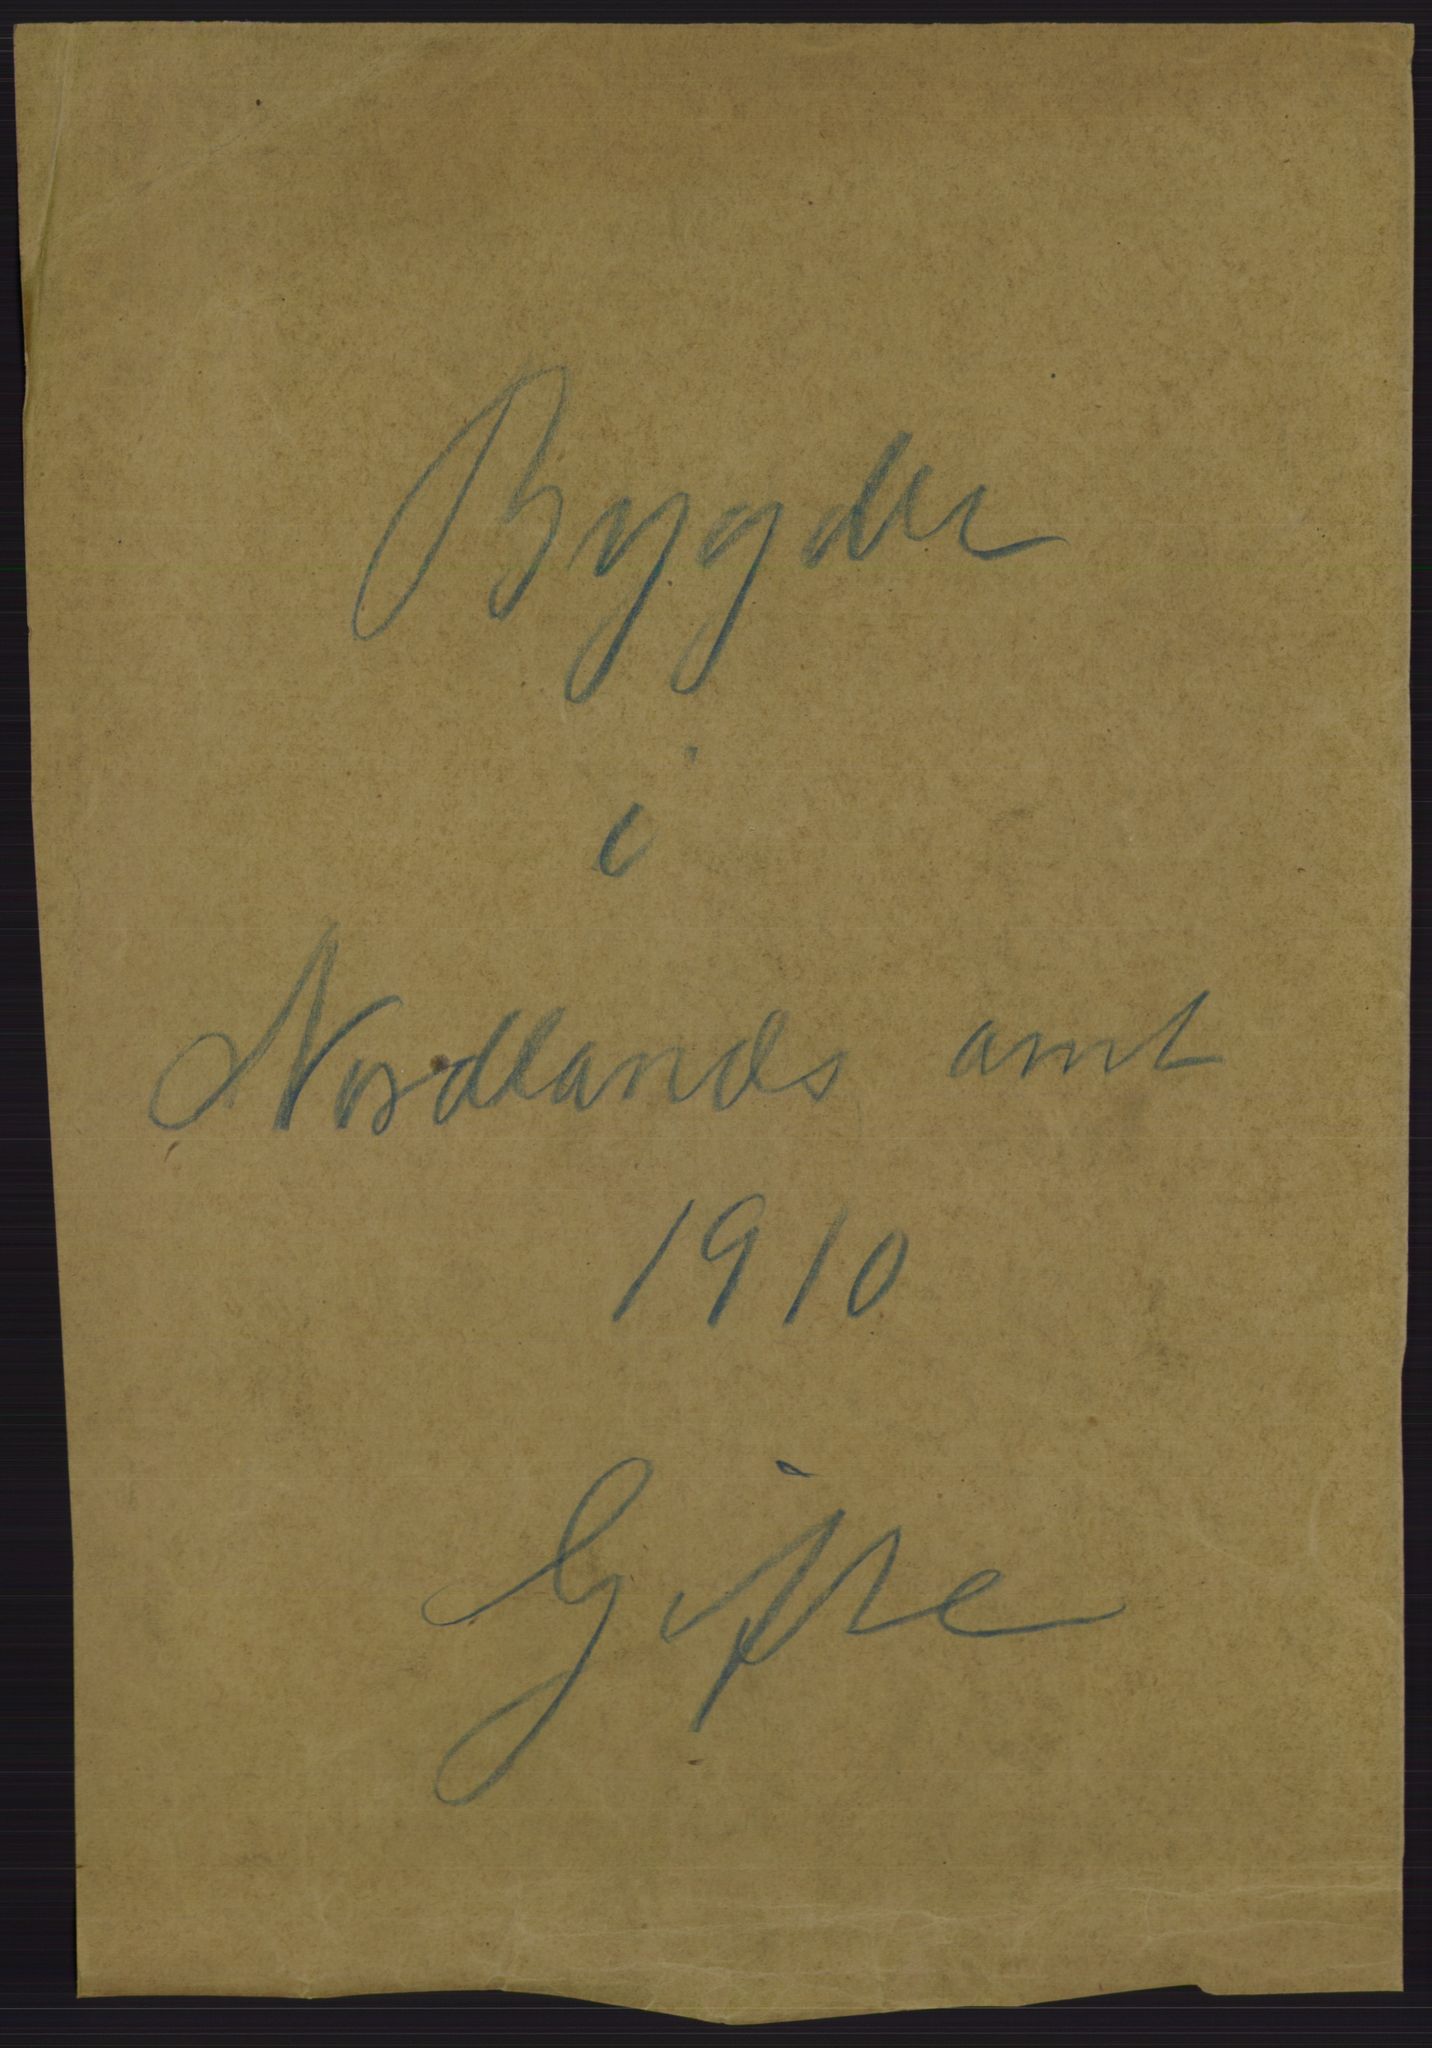 Bygder
i
Nordlands amt
1910
Gifte